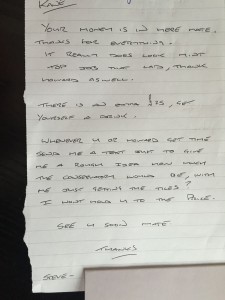 KANE
YOUR MONEY IS IN HERE MATE,
THANKS FOR EVERYTHING.
IT REALLY DOES LOOK MINT
TOP JOB THE LADS, THANK
HOWARD ASWELL.
THERE IS AN EXTRA £25, GET
YOURSELF A DRINK.
WHENEVER U OR HOWARD GET TIME
SEND ME A TEXT JUST TO GIVE
ME A ROUGH IDEA HOW MUCH
THE CONSERVATORY WOULD BE, WITH
ME JUST GETTING THE TILES?
I WONT HOLD U TO THE PRICE.
SEE U SOON MATE
THANKS
STEVE-